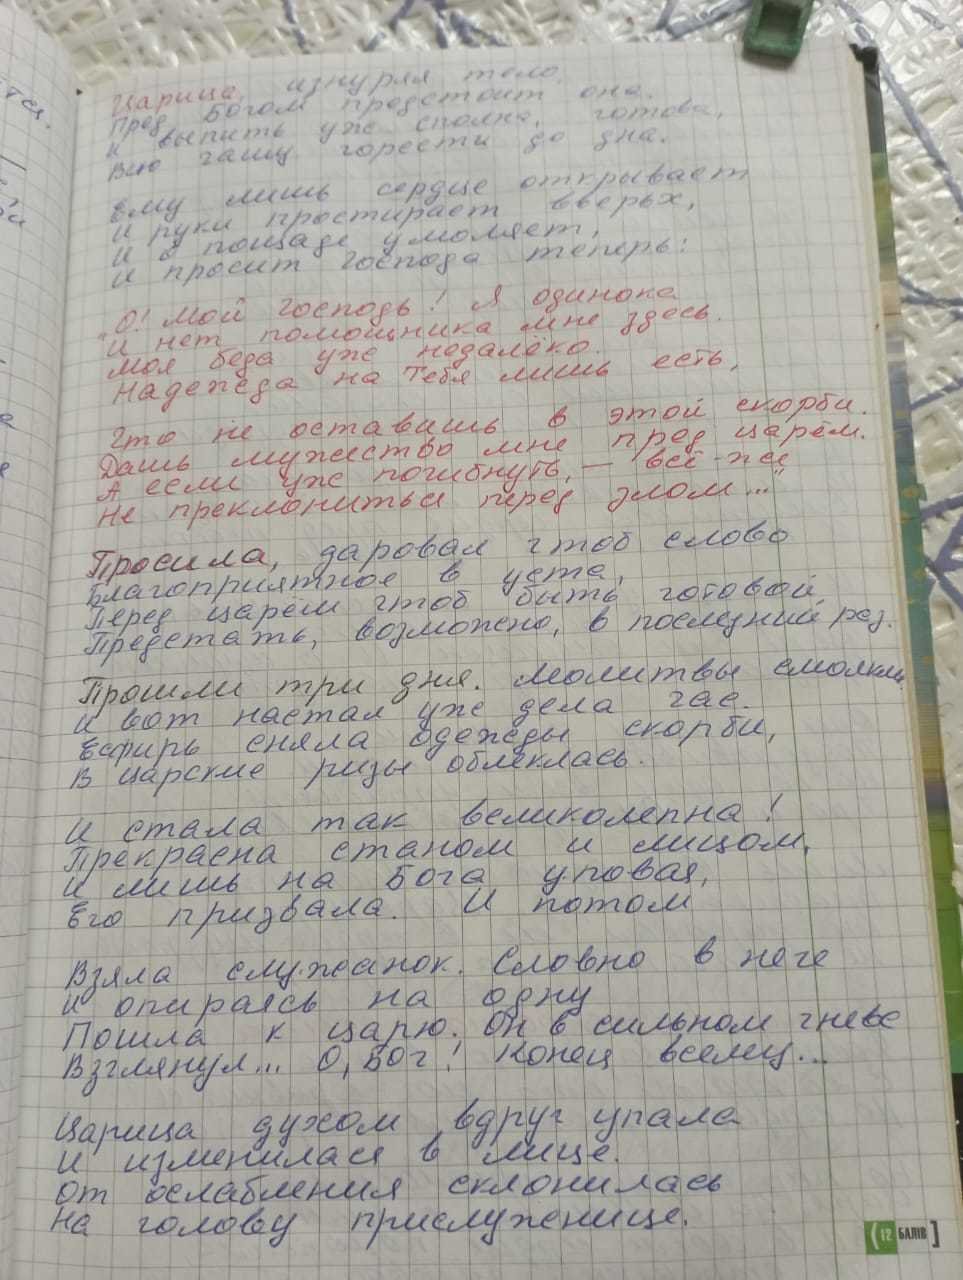 Царица, изнуряя тело,
Пред Богом предстоит она.
И выпить уже сполна, готова,
Всю чашу горести до дна.
Ему лишь сердце открывает
И руки простирает вверьх,
И о пощаде умоляет,
И просит Господа теперь:
"О! Мой Господь! Я одинока
И нет помощника мне здесь.
Моя беда уже недалёко.
Надежда на Тебя лишь есть,
Что не оставишь в этой скорби.
Дашь мужество мне пред царём.
А если уже погибнуть, — всё-же
Не преклониться перед злом..."
Просила, даровал чтоб слово
Благоприятное в уста,
Перед царём чтоб быть готовой,
Предстать, возможно, в последний раз.
Прошли три дня. Молитвы смолкли,
И вот настал уже дела час.
Есфирь сняла одежды скорби,
В царские ризы облеклась.
И стала так великолепна!
Прекрасна станом и лицом,
И лишь на Бога уповая,
Его призвала. И потом
Взяла служанок. Словно в неге
И опираясь на одну
Пошла к царю. Он в сильном гневе
Взглянул... О, Бог! Конец всему...
Царица духом вдруг упала
И изменилась в лице.
От ослабления склонилась
На голову прислужнице.
(12 БАЛІВ]